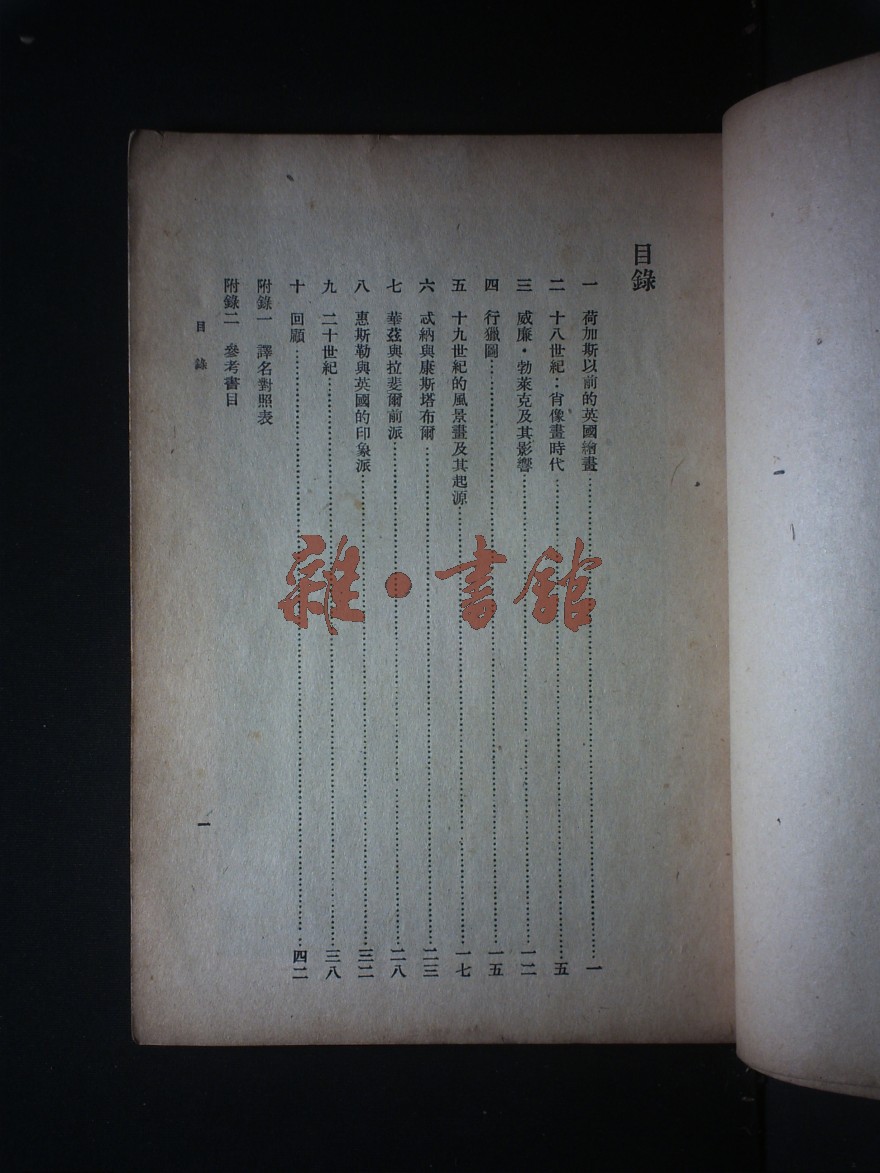 目錄
一 荷加斯以前的英國繪畫……一
二 十八世紀：肖像畫時代……五
三 威廉・勃萊克及其影響……一二
四 行獵圖……一五
五 十九世紀的風景畫及其起源……一七
六 忒納與康斯塔布爾……二三
七 華茲與拉斐爾前派……二八
八 惠斯勒與英國的印象派……三二
九 二十世紀……三八
十 回顧……四二
附錄一 譯名對照表
附錄二 參考書目
目錄
一
雜・書館